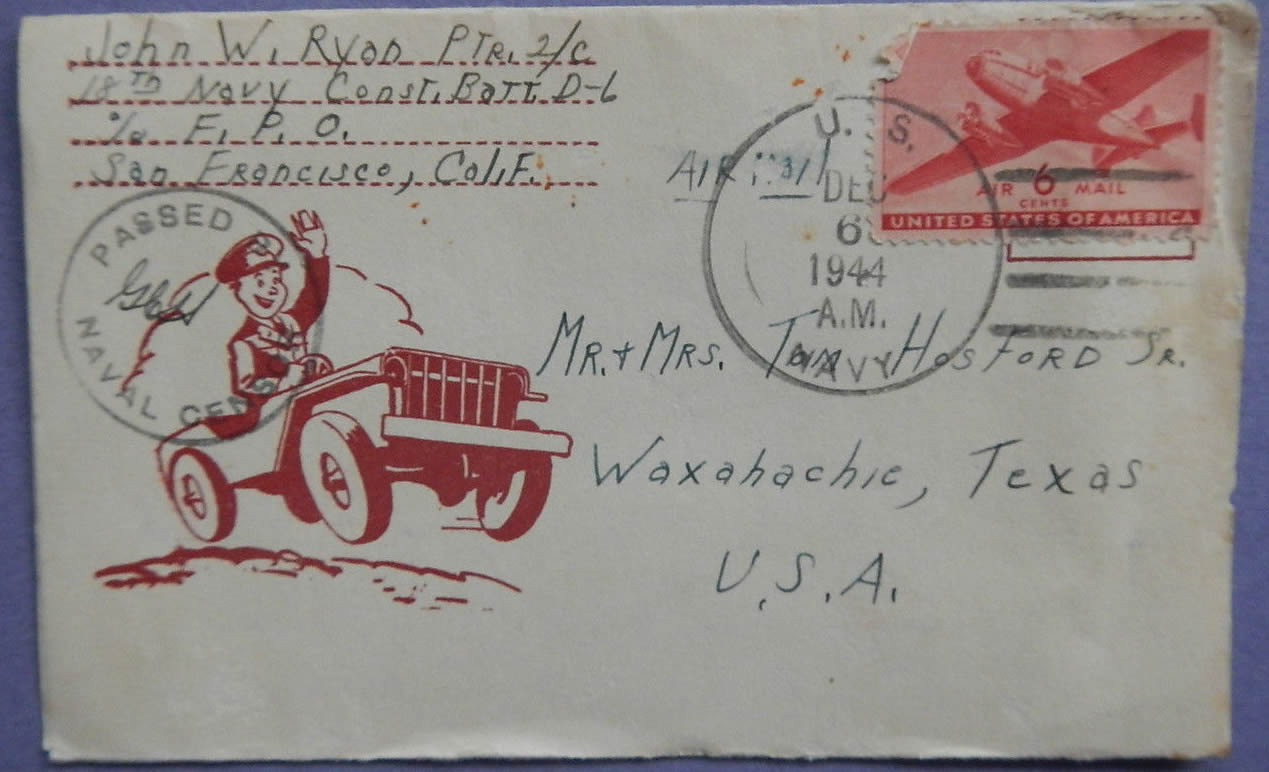 John W. Ryan Ptr. 2/c
18TH Navy Const. Batt. D-6
c/o F. P. O.
San Francisco, Calif.
PASSED BY
NAVAL CENSOR
AIR Mail
U. S.
DEC
6
1944
A.M.
NAVY
AIR 6 MAIL
CENTS
UNITED STATES OF AMERICA
MR. + MRS. Tom HOSFORD SR.
Waxahachie, Texas
U.S.A.